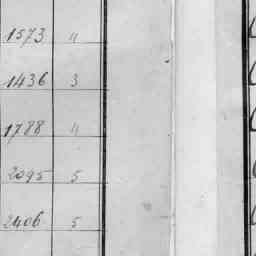 1573 4
1436 3
1788 4
2095 5
2406 5